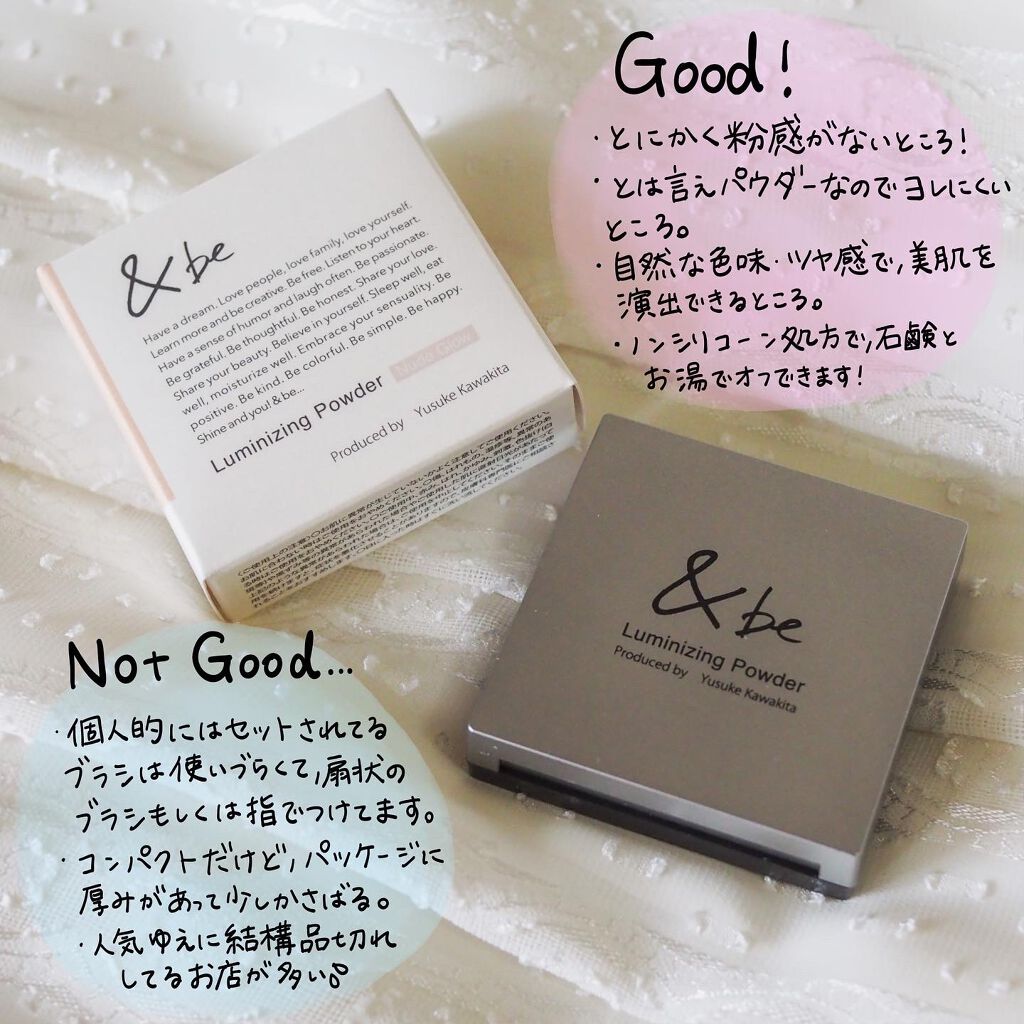 Good!
・とにかく粉感がないところ!
・とは言えパウダーなのでヨレにくい
ところ。
・自然な色味・ツヤ感で,美肌を
演出できるところ。
・ノンシリコーン処方で,石鹸と
お湯でオフできます!
&be
Have a dream. Love people, love family, love yourself.
Learn more and be creative. Be free. Listen to your heart.
Have a sense of humor and laugh often. Be passionate.
Be grateful. Be thoughtful. Be honest. Share your love.
Share your beauty. Believe in yourself. Sleep well, eat
well, moisturize well. Embrace your sensuality. Be
positive. Be kind. Be colorful. Be simple. Be happy.
Shine and you! & be...
Luminizing Powder Nude Glow
Produced by Yusuke Kawakita
&be
Luminizing Powder
Produced by Yusuke Kawakita
Not Good...
・個人的にはセットされてる
ブラシは使いづらくて,扇状の
ブラシもしくは指でつけてます。
・コンパクトだけど,パッケージに
厚みがあって少しかさばる。
・人気ゆえに結構品切れ
してるお店が多い。